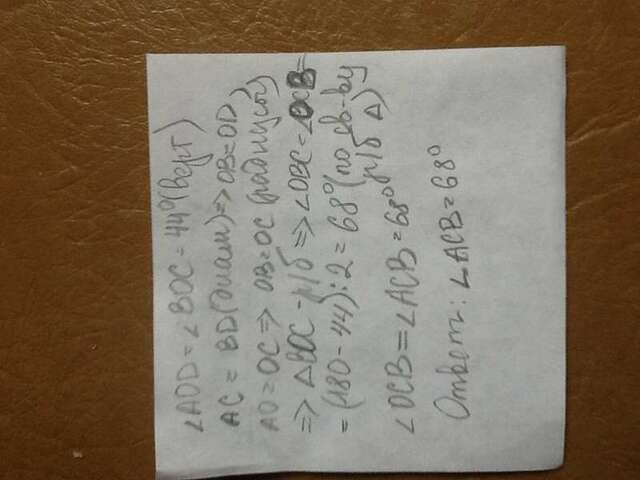 ∠AOD = ∠BOC = 44° (верт)
AC = BD (диам) => OB = OD,
AO = OC => OB = OC (радиусы)
=> △BOC - р/б => ∠OBC = ∠OCB =
= (180 - 44) : 2 = 68° (по св-ву
р/б △)
∠OCB = ∠ACB = 68°
Ответ: ∠ACB = 68°